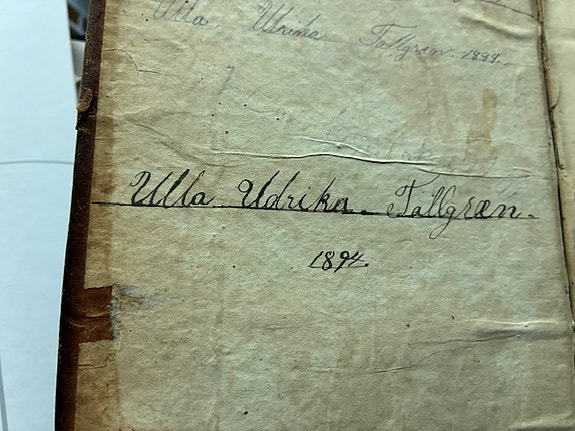 Ulla. Ulrika. Tallgræn. 1894.
Ulla Udrika. Tallgræn.
1894.